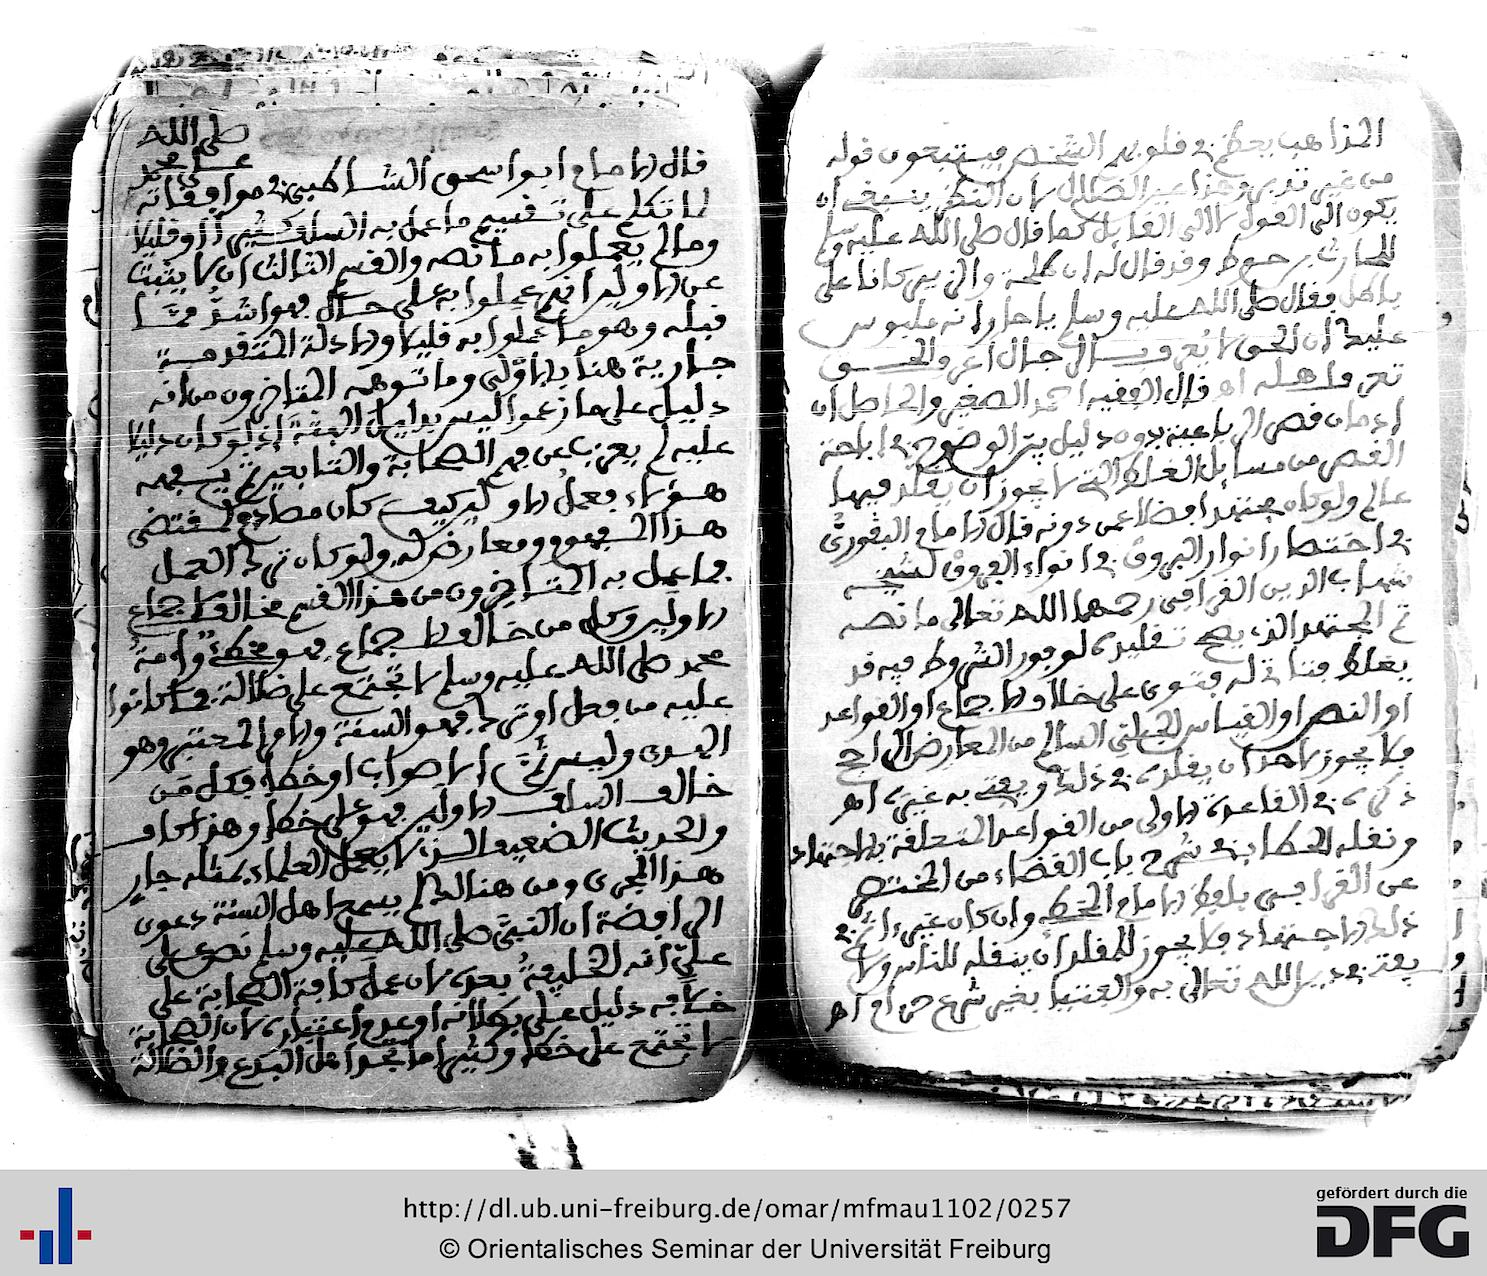 المذاهب يعظم في قلوبهم الشخص فيتبعون قوله
من غير تدبر وهذا عين الضلال لان النظر ينبغي ان
يكون الى القول لا الى القايل كما قال صلى الله عليه وسلم
للحارث بن حوط وقد قال له ان طلحة والزبير كانا على
باطل فقال صلى الله عليه وسلم يا حار انه ملبوس
عليك ان الحق لا يعرف بالرجال اعرف الحق
تعرف اهله اه قال الفقيه احمد الصغير والحاصل ان
ادمان قص الرباعية بدون دليل بين الوضوح في اباحة
القص من مسايل الغلط التي لا يجوز ان يقلد فيها
عالم ولو كان مجتهدا فضلا عمن دونه قال الامام البقوري
في اختصار انوار البروق في انواء الفروق لشيخه
شهاب الدين القرافي رحمهما الله تعالى ما نصه
ثم المجتهد الذي يصح تقليده لوجود الشروط فيه قد
يغلط فتتاتى له فتوى على خلاف الاجماع او القواعد
او النص او القياس الجلي السالم من المعارض الراجح
فلا يجوز لاحد ان يقلده في ذلك ويفتي به غيره اه
ذكره في القاعدة الاولى من القواعد المتعلقة بالاجتهاد
ونقله الحطاب في شرح باب القضاء من المختصر
عن القرافي بلفظ الامام المخطئ وان كان غير اثم في
ذلك الاجتهاد فلا يجوز للمقلد ان ينقله للناس ولا
يفتي في دين الله تعالى به والفتيا بغير شرع حرام اه
صلى الله
على محمد
قال الامام ابو اسحق الشاطبي في موافقاته
لما تكلم على تقسيم ما عمل به السلف كثيرا او قليلا
وما لم يعملوا به ما نصه والقسم الثالث ان لا يثبت
عن الاولين انهم عملوا به على حال فهو اشد مما
قبله وهو ما عملوا به قليلا والادلة المتقدمة
جارية هنا بالاولى وما توهمه المتاخرون من انه
دليل على ما زعموا ليس بدليل البتة اذ لو كان دليلا
عليه لم يعزب عن فهم الصحابة والتابعين ثم يفهمه
هؤلاء فعمل الاولين كيف كان مصادم لمقتضى
هذا المفهوم ومعارض له ولو كان ترك العمل
فما عمل به المتاخرون من هذا القسم مخالف لاجماع
الاولين وكل من خالف الاجماع فهو مخطئ وامة
محمد صلى الله عليه وسلم لا تجتمع على ضلالة فما كانوا
عليه من فعل او ترك فهو السنة والامر المعتبر وهو
الهدى وليس ثم الا صواب او خطا فكل من
خالف السلف الاولين فهو على خطا وهذا كاف
والحديث الضعيف الذي لا يعمل العلماء بمثله جار
هذا المجرى ومن هنالك لم يسمع اهل السنة دعوى
الرافضة ان النبي صلى الله عليه وسلم نص على
علي انه الخليفة بعده لان عمل كافة الصحابة على
خلافه دليل على بطلانه او عدم اعتباره لان الصحابة
لا تجتمع على خطا وكثيرا ما تجد اهل البدع والضلالة
http://dl.ub.uni-freiburg.de/omar/mfmau1102/0257
© Orientalisches Seminar der Universität Freiburg
gefördert durch die
DFG